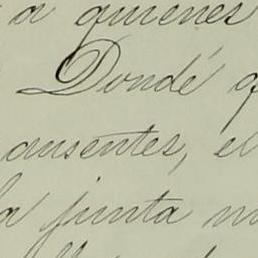 a quienes
Dondé q
ausentes, el
la junta